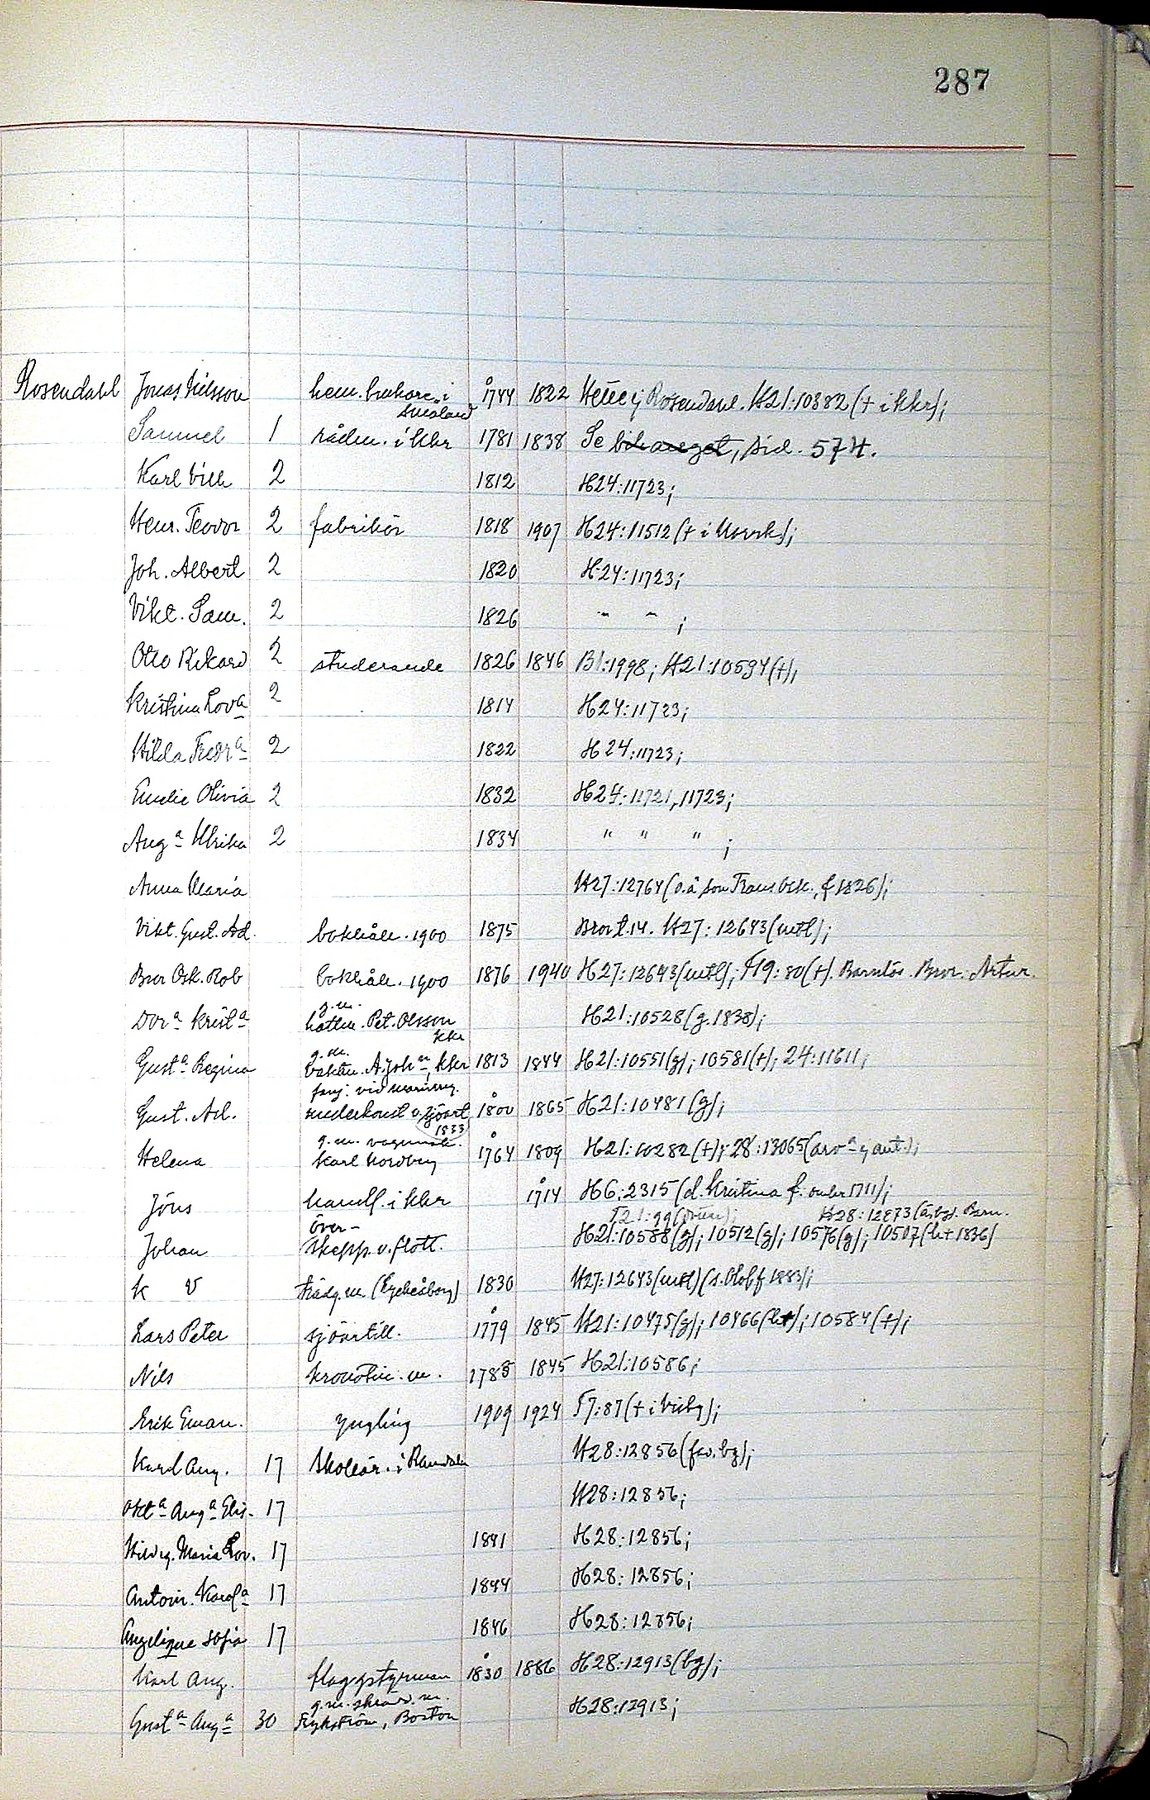 287
Rosendahl Jonas Nilsson hem. brukare i Småland 1744 1822 Hette ej Rosendahl. H21:10382 (+ i Kkr);
Samuel 1 rådm. i Kkr 1781 1838 Se bihanget, sid. 574.
Karl Vilh 2 1812 H24:11723;
Henr. Teodor 2 fabrikör 1818 1907 H24:11512 (+ i Norrk);
Joh. Albert 2 1820 H24:11723;
Vikt. Sam. 2 1826 " " ;
Otto Rikard 2 studerande 1826 1846 B1:1998; H21:10594 (+);
Kristina Lovª 2 1814 H24:11723;
Hilda Fredrª 2 1822 H24:11723;
Emelie Olivia 2 1832 H24:11721, 11723;
Augª Ulrika 2 1834 " " " ;
Anna Maria H27:12764 (o.ä son Frans Osk., f 1826);
Vikt. Gust. Ad. bokhåll. 1900 1875 Bror t. 14. H27:12643 (utfl);
Bror Osk. Rob bokhåll. 1900 1876 1940 H27:12643 (utfl); F19:80 (+). Barnlös. Bror: Artur.
Dorª Kristª g.m. hattm. Pet. Olsson Kkr H21:10528 (g. 1838);
Gustª Regina g.m. båtsm. A. Johⁿ, Kkr 1813 1844 H21:10551 (g); 10581 (+); 24:11611;
Gust. Ad. fanj. vid marinreg. underkonst v. sjöart 1833 1800 1865 H21:10481 (g);
Helena g.m. vagnmak. Karl Nordberg 1764 1809 H21:10282 (+); 28:13065 (arvª g ant);
Jöns handl. i Kkr 1714 H6:2315 (d. Kristina f. onkr 1711);
Johan över- skepp. v. flott. F21:99 H28:12873 Barn. H21:10588 (g); 10512 (g); 10576 (g); 10507 (h + 1836)
K V trädg. m. (Lyckåborg) 1830 H27:12643 (utfl) (s. Olof f 1883);
Lars Peter sjöartill. 1779 1845 H21:10475 (g); 10466 (h+); 10584 (+);
Nils kronotim. m. 1785 1845 H21:10586;
Erik Eman. yngling 1909 1924 F7:87 (+ i Visby);
Karl Aug. 17 skollär. i Ramdala H28:12856 (fav. bg);
Oktª Augª Elis. 17 H28:12856;
Hedvig. Maria Lov. 17 1841 H28:12856;
Antoin. Karolª 17 1844 H28:12856;
Angelique Sofia 17 1846 H28:12856;
Karl Aug. flaggstyrman 1830 1886 H28:12913 (bg);
Gustª Augª 30 g.m. skräd. m. Frykström, Boston H28:12913;